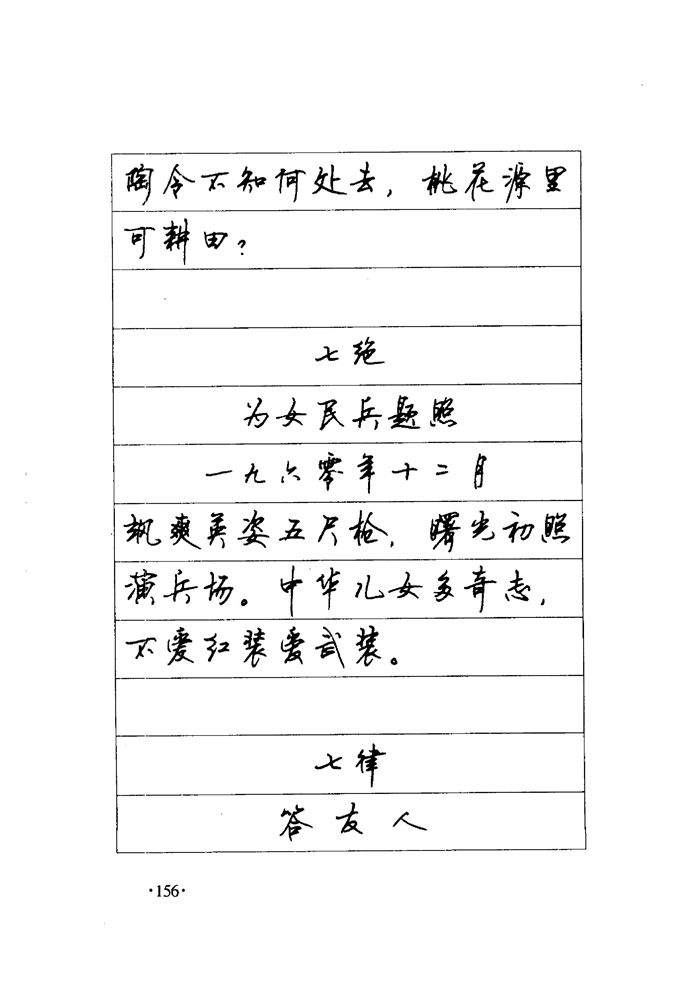 陶令不知何处去，桃花源里
可耕田？
七绝
为女民兵题照
一九六零年十二月
飒爽英姿五尺枪，曙光初照
演兵场。中华儿女多奇志，
不爱红装爱武装。
七律
答友人
·156·